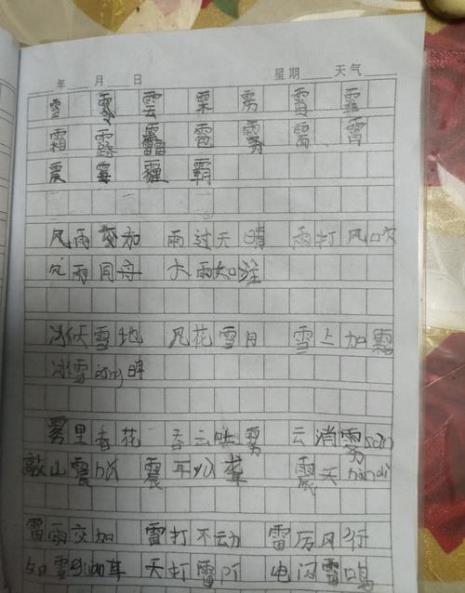 年 月 日 星期 天气
雪 雲 雾 霜
霜 露 雹 雾 雷 霄
震 霉 霾 霸
风雨交加 雨过天晴 雨打风吹
风雨同舟 大雨如注
冰天雪地 风花雪月 雪上加霜
冰雪 ing
雾里看花 吞云吐雾 云消雾sàn
敲山震hǔ 震耳yù聋 震天hàn dì
雷雨交加 雷打不动 雷厉风行
如雷guàn耳 天打雷pī 电闪雷鸣